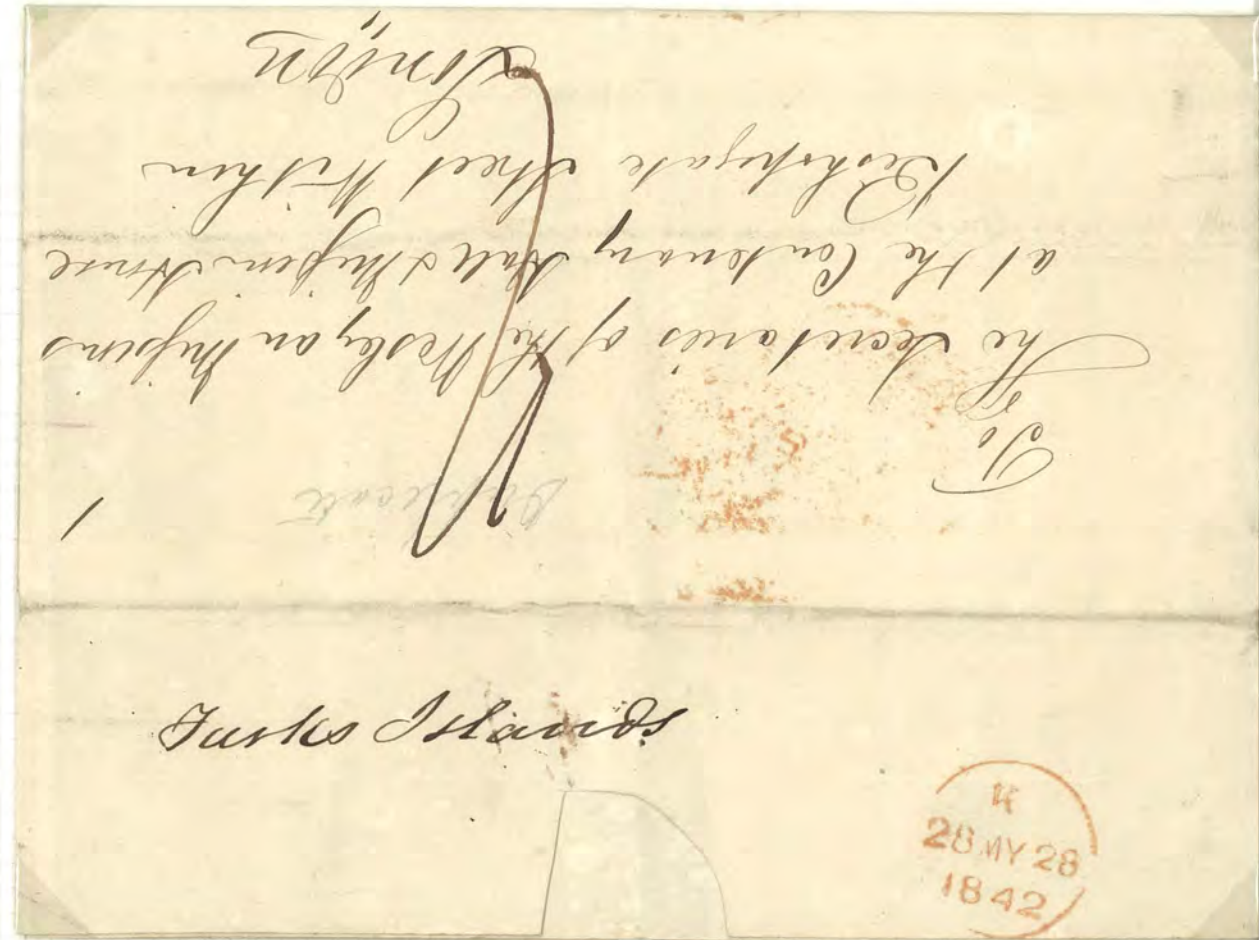 To
The Secretaries of the Wesleyan Missions
at the Centenary Hall & Mission House
Bishopsgate Street Within
London
Duplicate
1
Turks Islands
28 MY 28
1842